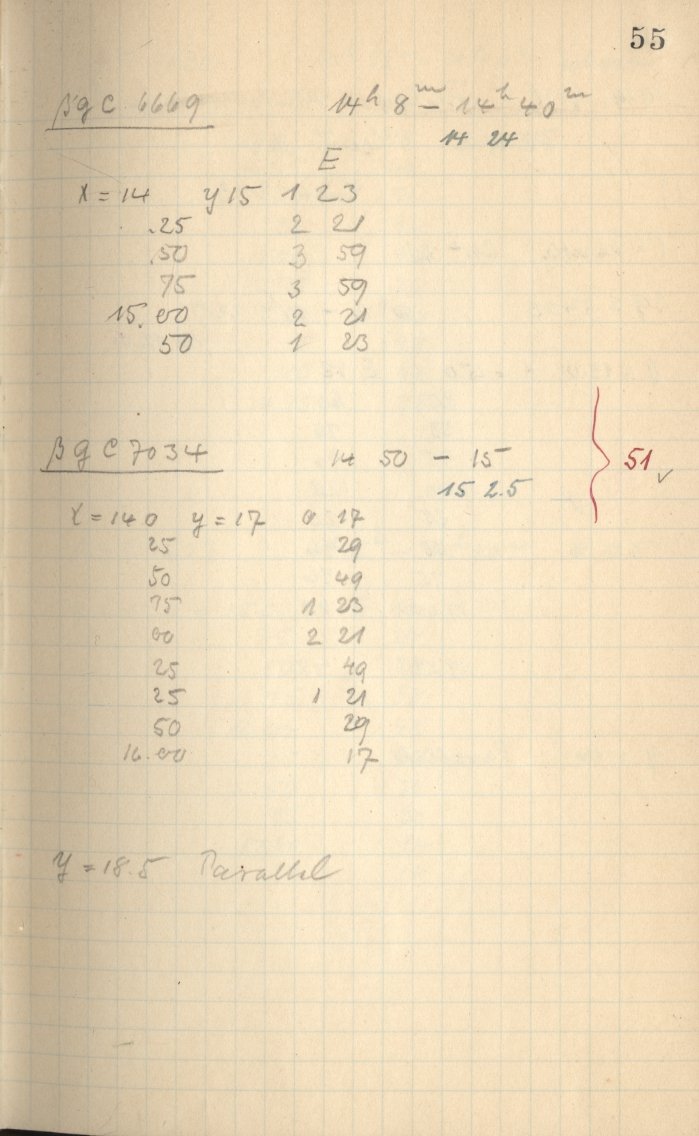 55
βgC 6669 14ʰ 8ᵐ — 14ʰ 40ᵐ
14 24
E
X = 14 y 15 1 23
.25 2 21
.50 3 59
75 3 59
15.00 2 21
50 1 23
βgC 7034 14 50 — 15
15 2.5
} 51 ✓
X = 14 0 y = 17 0 17
25 29
50 49
75 1 23
00 2 21
25 49
25 1 21
50 29
16.00 17
y = 18.5 Parallel